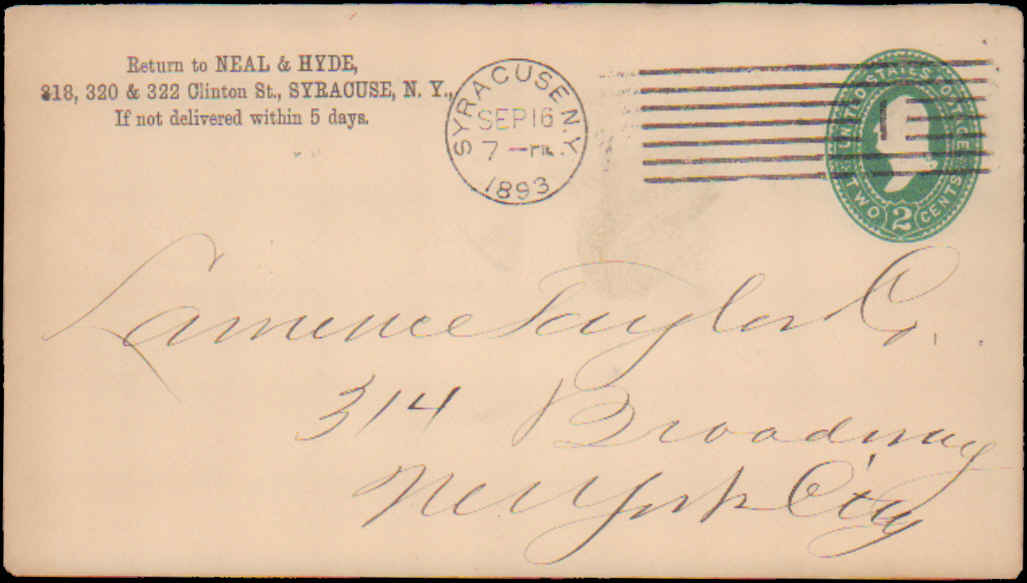 Return to NEAL & HYDE,
318, 320 & 322 Clinton St., SYRACUSE, N. Y.,
If not delivered within 5 days.
SYRACUSE N.Y.
SEP 16
7 - PM
1893
1
UNITED STATES POSTAGE
TWO 2 CENTS
Lawrence Taylor Co.
314 Broadway
New York City